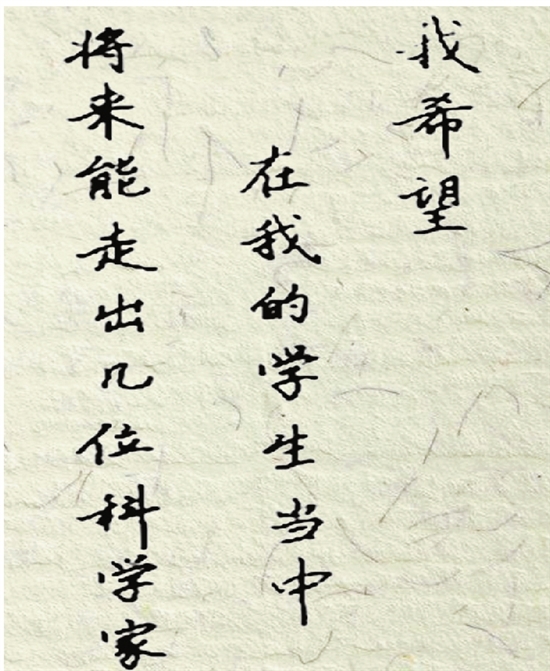 我希望
在我的学生当中
将来能走出几位科学家